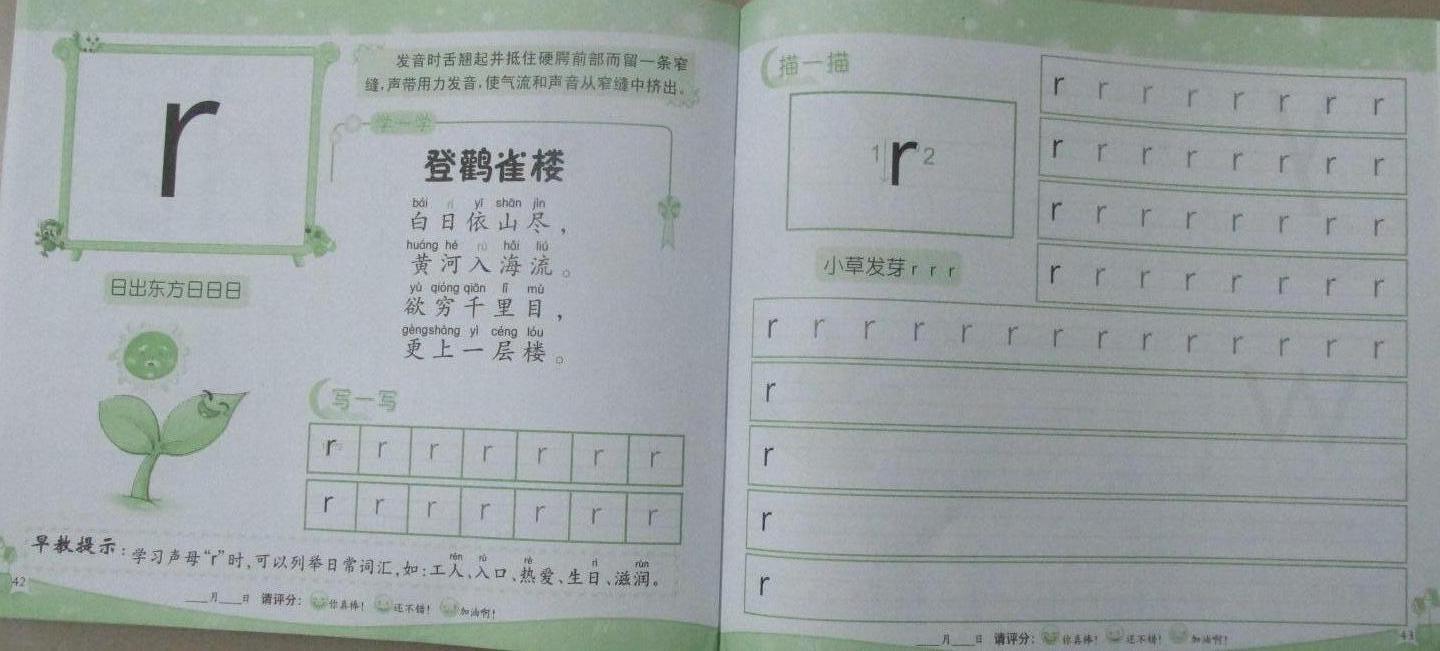 r
发音时舌翘起并抵住硬腭前部而留一条窄
缝,声带用力发音,使气流和声音从窄缝中挤出。
学一学
登鹳雀楼
bái rì yī shān jìn
白日依山尽,
huáng hé rù hǎi liú
黄河入海流。
yù qióng qiān lǐ mù
欲穷千里目,
gèngshàng yì céng lóu
更上一层楼。
日出东方日日日
写一写
r r r r r r r
r r r r r r r
rén rù rè rì rùn
早教提示:学习声母“r”时,可以列举日常词汇,如:工人、入口、热爱、生日、滋润。
42
____月____日 请评分: 你真棒! 还不错! 加油啊!
描一描
1 r 2
小草发芽 r r r
r r r r r r r r
r r r r r r r r
r r r r r r r r
r r r r r r r r
r r r r r r r r r r r r r r
r
r
r
r
____月____日 请评分: 你真棒! 还不错! 加油啊!
43